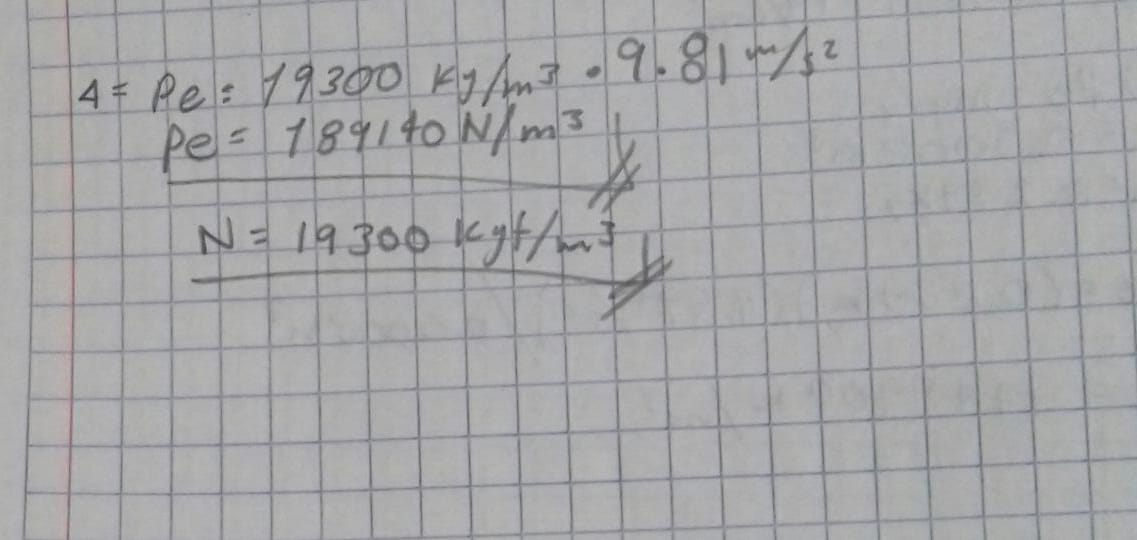 4= Pe= 19300 Kg/m³ • 9.81 m/s²
Pe= 189140 N/m³
N= 19300 Kgf/m³